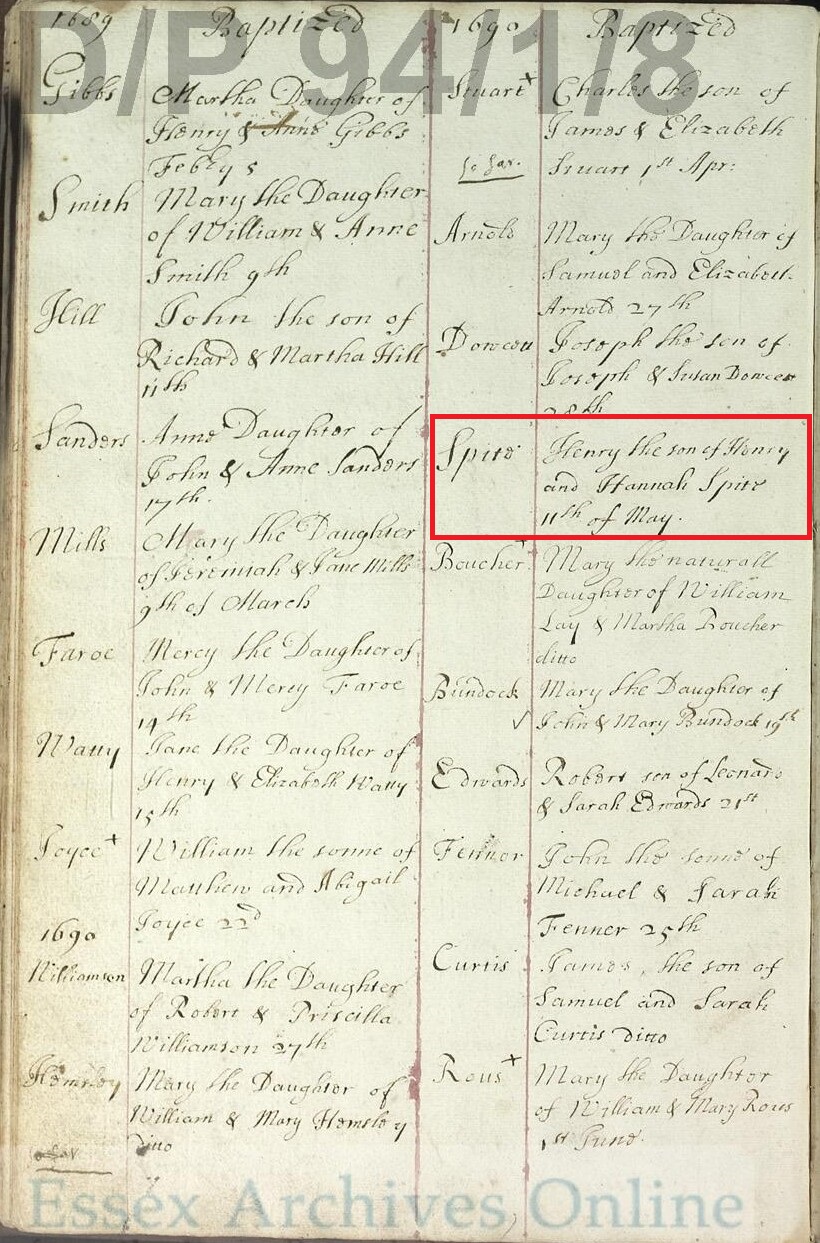 D/P 94/1/8
1689 Baptized
Gibbs Martha Daughter of
Henry & Anne Gibbs
Febry 5
Smith Mary the Daughter
of William & Anne
Smith 9th
Hill John the son of
Richard & Martha Hill
11th
Sanders Anne Daughter of
John & Anne Sanders
17th.
Mills Mary the Daughter
of Jeremiah & Jane Mills
9th of March
Faroe Mercy the Daughter of
John & Mercy Faroe
14th
Watty Jane the Daughter of
Henry & Elizabeth Watty
15th
Joyce + William the sonne of
Matthew and Abigail
Joyce 22d
1690
Williamson Martha the Daughter
of Robert & Priscilla
Williamson 27th
Hemsley Mary the Daughter of
William & Mary Hemsley
ditto
1690 Baptized
Stuart + Charles the son of
James & Elizabeth
Stuart 1st Apr:
Arnold Mary the Daughter of
Samuel and Elizabeth
Arnold 27th
Joseph the son of
Joseph & Susan
28th
Spite Henry the son of Henry
and Hannah Spite
11th of May.
Boucher + Mary the naturall
Daughter of William
Lay & Martha Boucher
ditto
Bundock Mary the Daughter of
✓ John & Mary Bundock 19th
Edwards Robert son of Leonard
& Sarah Edwards 21st
Fenner John the sonne of
Michael & Sarah
Fenner 25th
Curtis James the son of
Samuel and Sarah
Curtis ditto
Rous + Mary the Daughter
of William & Mary Rous
1st June.
Essex Archives Online